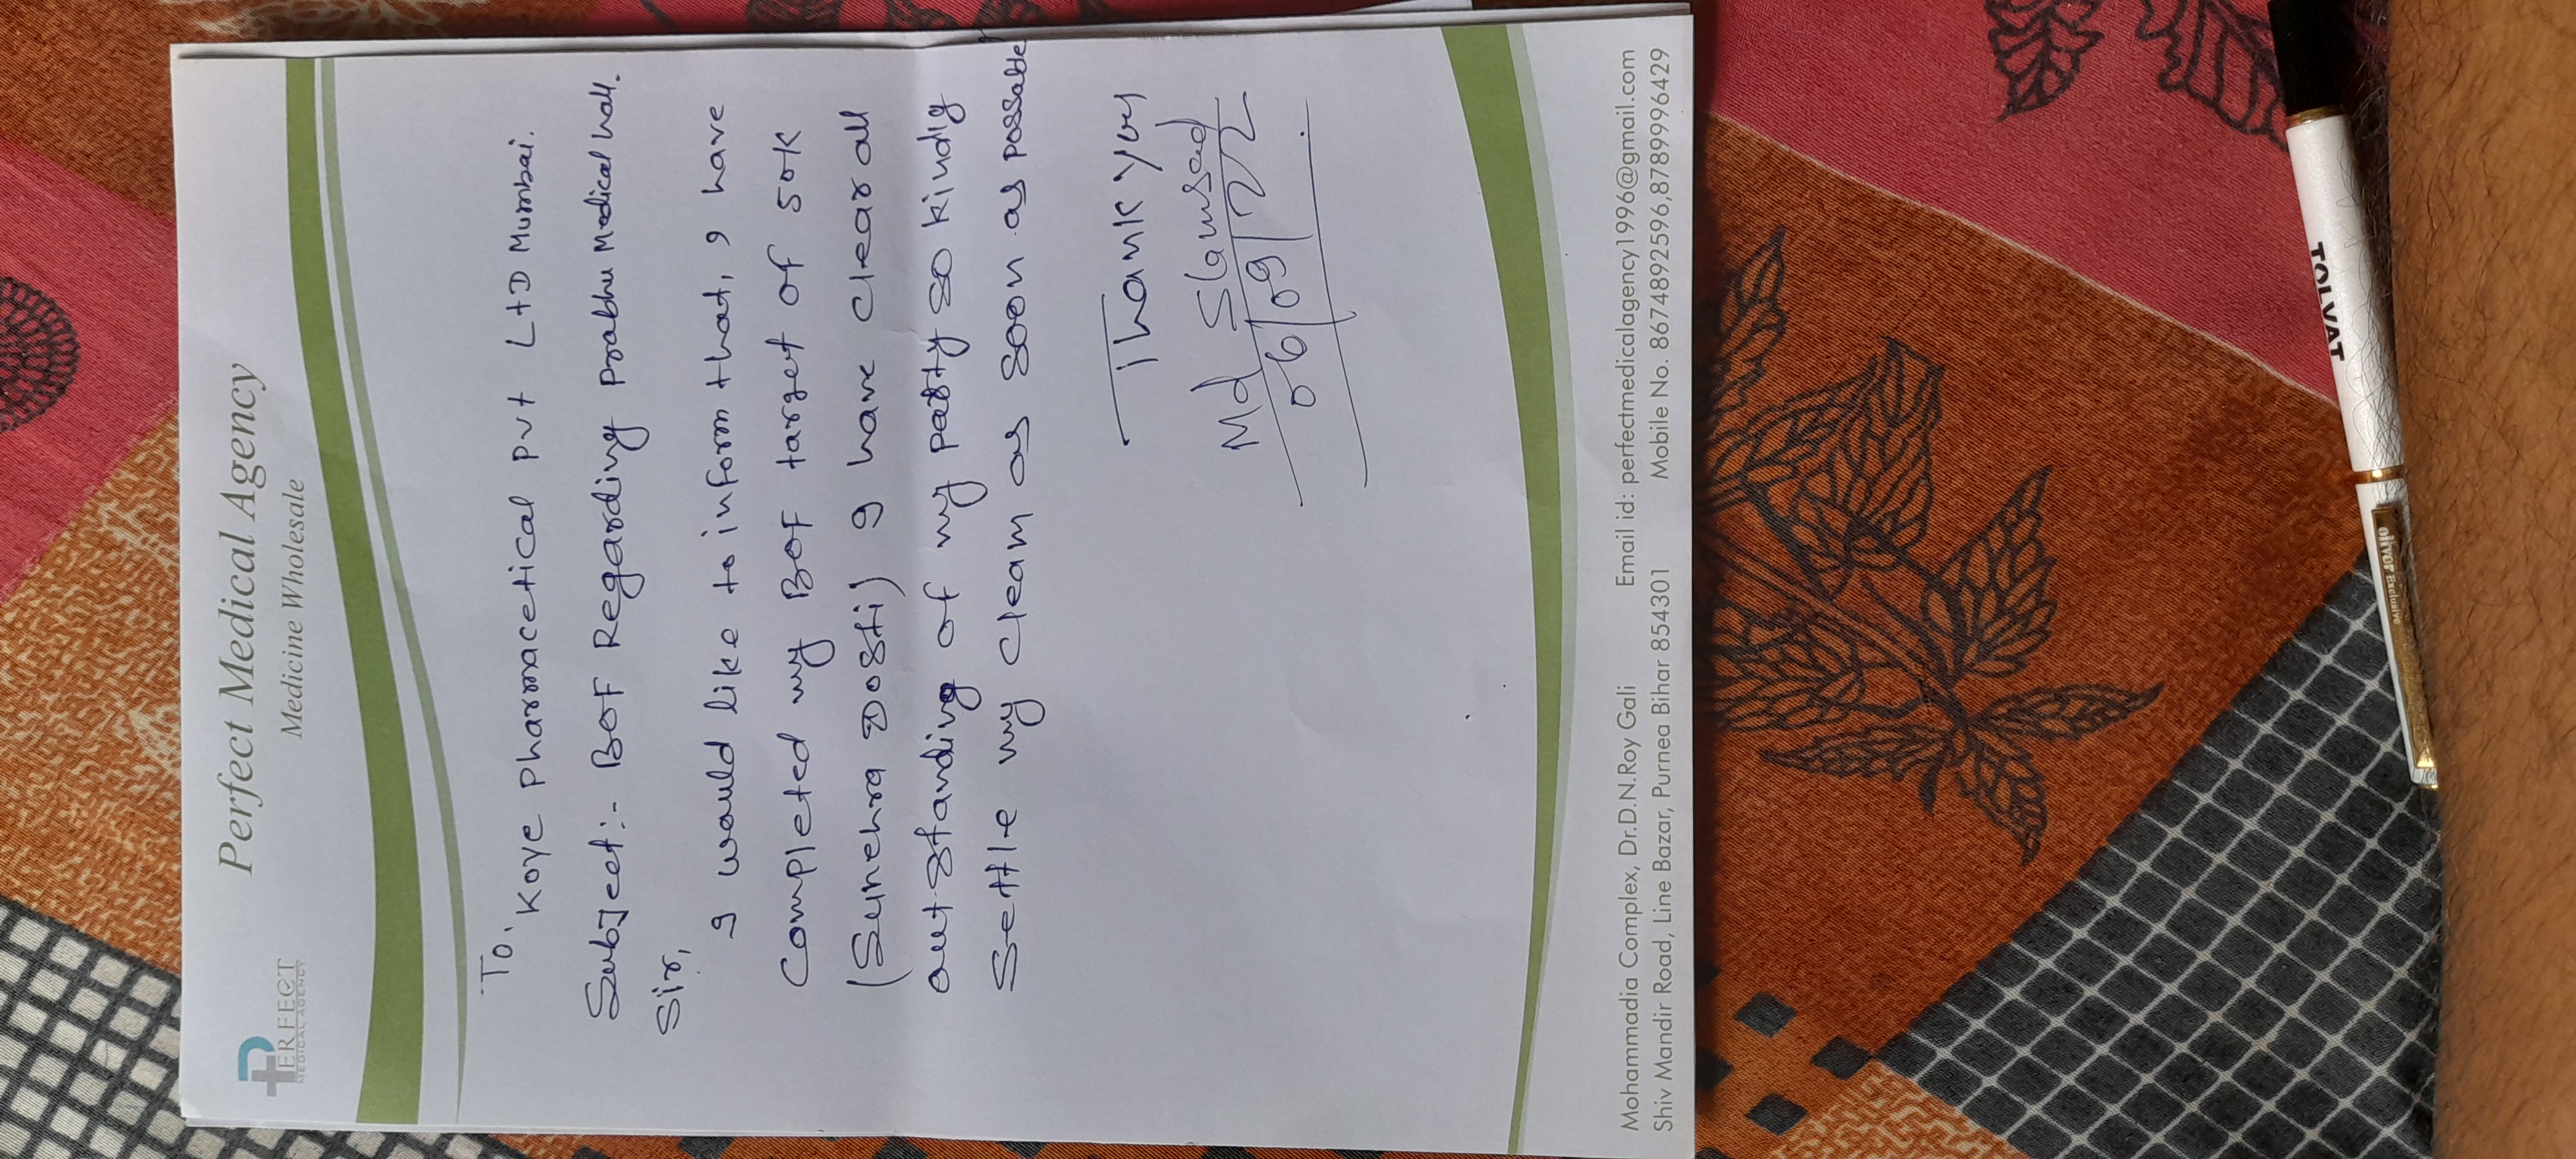 PERFECT
MEDICAL AGENCY
Perfect Medical Agency
Medicine Wholesale
To,
Koye Pharmacetical Pvt LtD Mumbai.
Subject:- BOF Regarding Prabhu Medical hall.
Sir,
I would like to inform that, I have
Completed my BOF target of 50K
(Sunehra Dosti) I have clear all
outstanding of my party so kindly
Settle my cleam as soon as possable
Thank you
Md
06/09/22
Mohammadia Complex, Dr.D.N.Roy Gali
Shiv Mandir Road, Line Bazar, Purnea Bihar 854301
Email id: perfectmedicalagency1996@gmail.com
Mobile No. 8674892596,8789996429
TOLVAT
olivor Exclusive